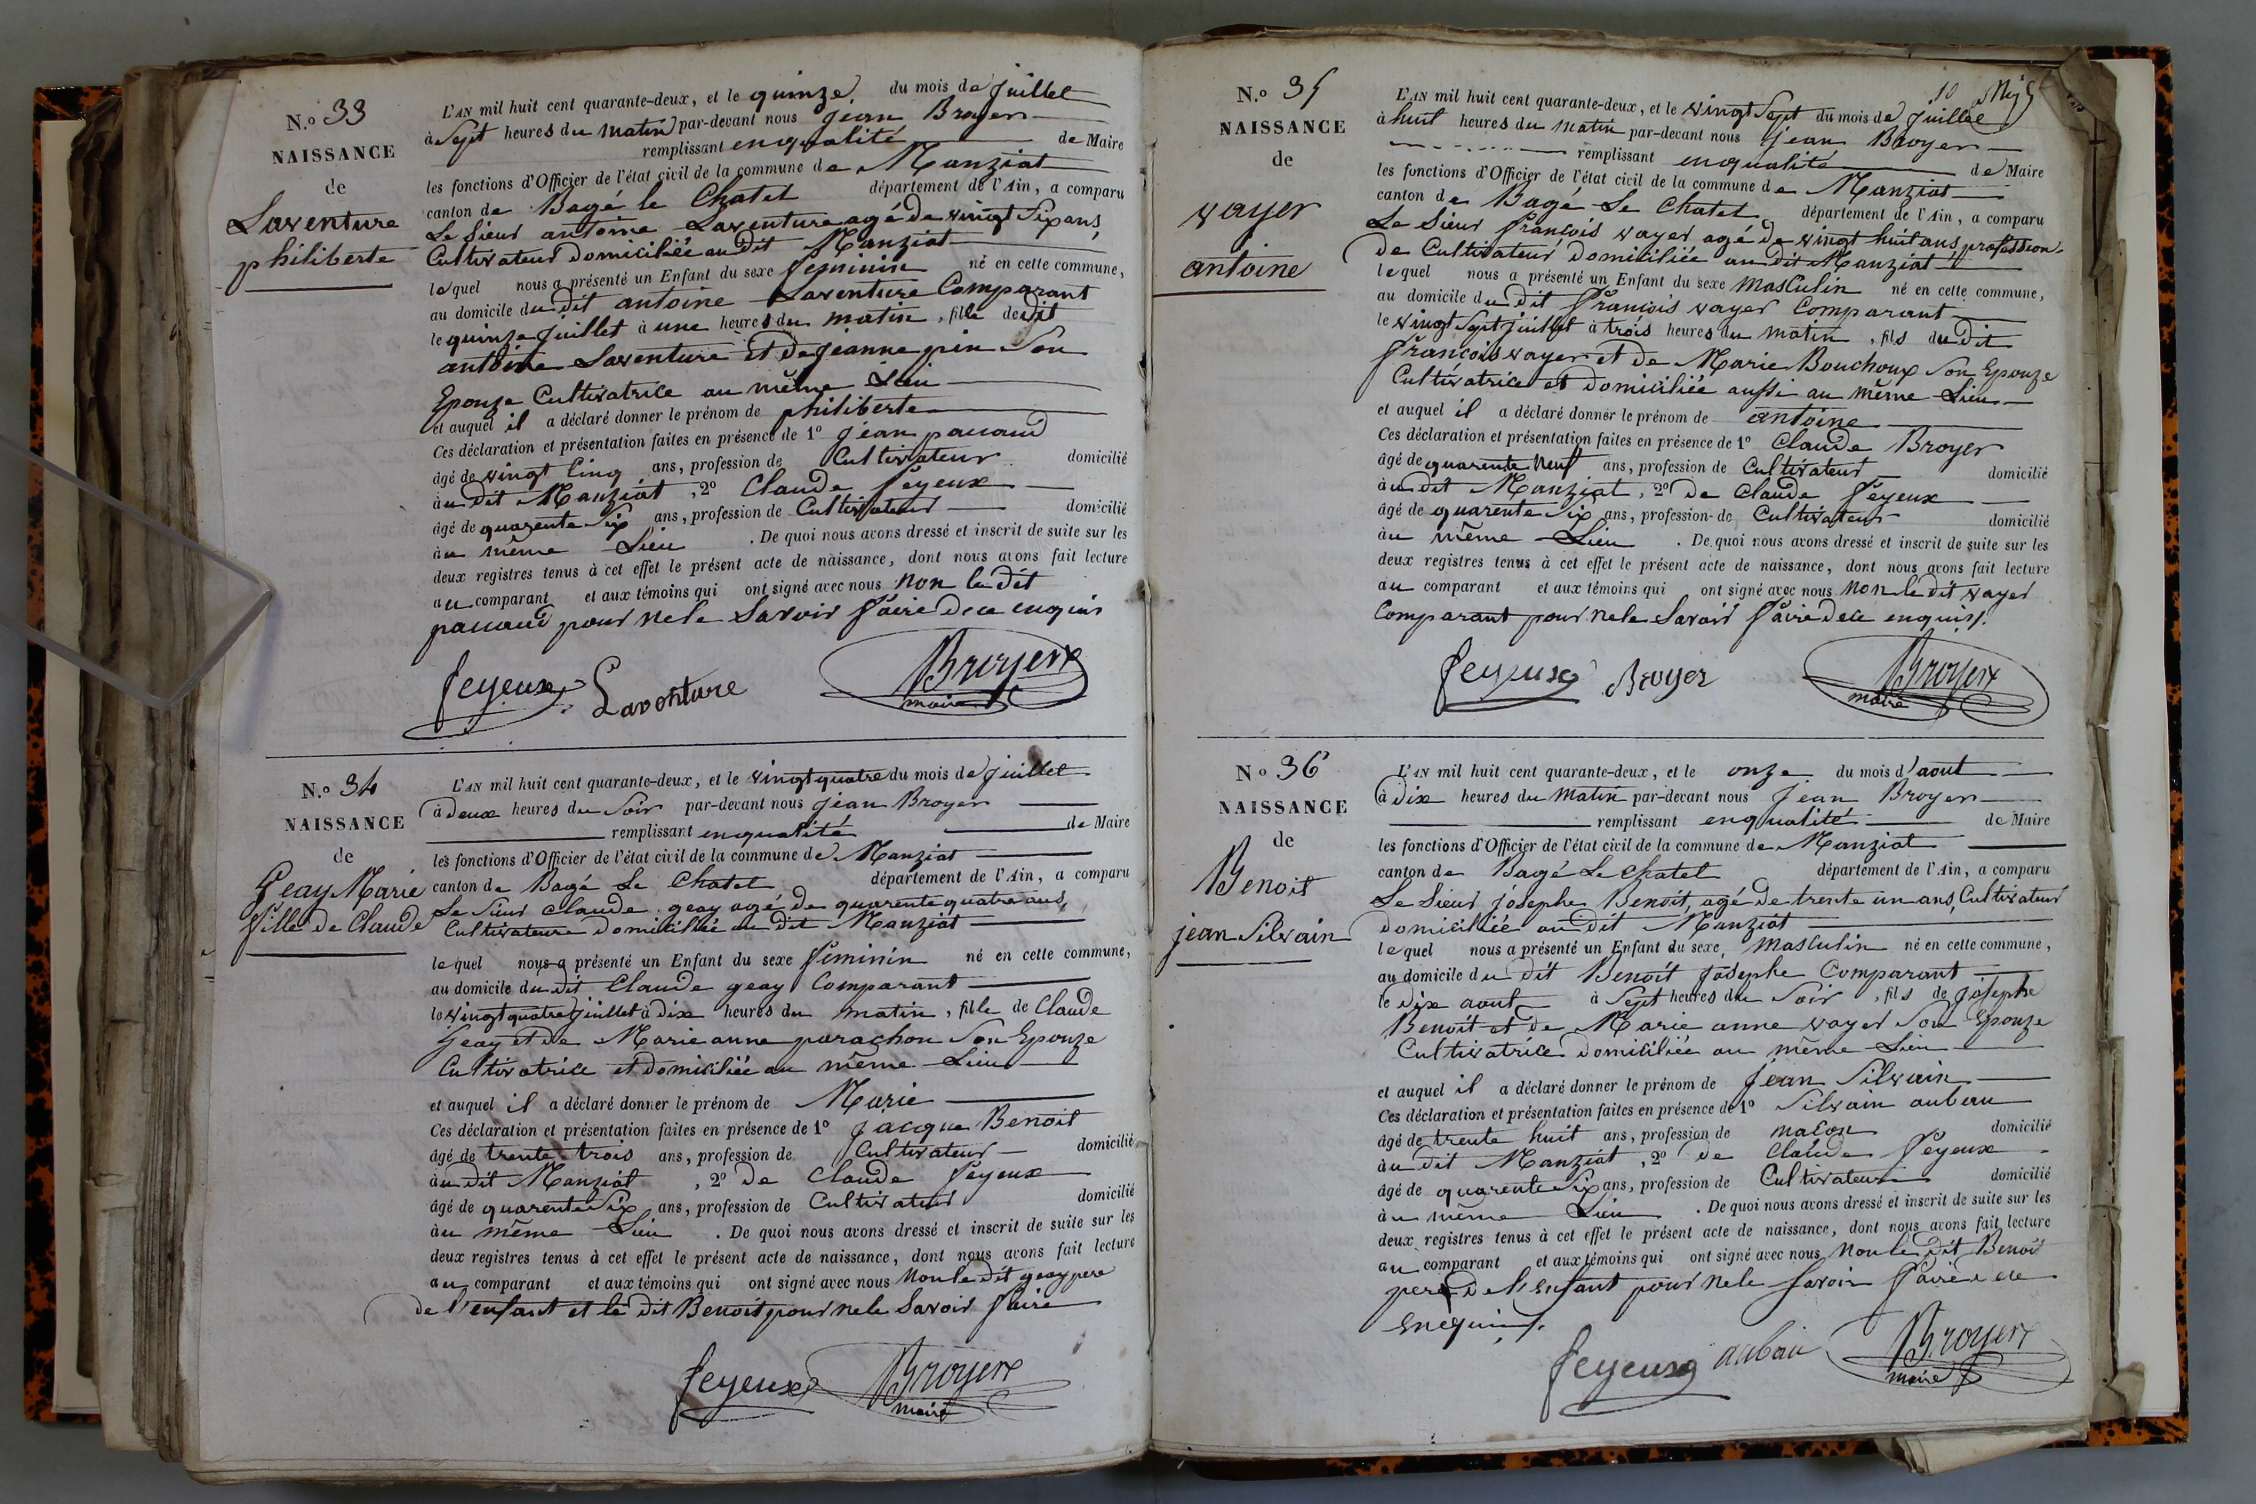 N.o 33
NAISSANCE
de
Laventure
philiberte
L'AN mil huit cent quarante-deux, et le quinze du mois de juillet
à Sept heures du matin par-devant nous jean Broyer
remplissant enqualité de Maire
les fonctions d'Officier de l'état civil de la commune de Manziat
canton de Bagé le Chatel département de l'Ain, a comparu
Le Sieur antoine Laventure agé de vingt Six ans,
Cultivateur domiciliée au dit Manziat
lequel nous a présenté un Enfant du sexe feminin né en cette commune,
au domicile du dit antoine Laventure Comparant
le quinze juillet à une heures du matin, fille de dit
antoine Laventure et de jeanne pin Son
Epouze Cultivatrice au même Lieu
et auquel il a déclaré donner le prénom de philiberte
Ces déclaration et présentation faites en présence de 1º jean pacaud
âgé de vingt Cinq ans, profession de Cultivateur domicilié
àu dit Manziat, 2º Claude feyeux
âgé de quarente Six ans, profession de Cultivateur domicilié
àu même Lieu . De quoi nous avons dressé et inscrit de suite sur les
deux registres tenus à cet effet le présent acte de naissance, dont nous avons fait lecture
au comparant et aux témoins qui ont signé avec nous non le dit
pacaud pour ne le Savoir faire de ce enquis
feyeux Laventure Broyer
maire
N.o 34
NAISSANCE
de
Geay Marie
fille de Claude
L'AN mil huit cent quarante-deux, et le vingt quatre du mois de juillet
à deux heures du Soir par-devant nous jean Broyer
remplissant enqualité de Maire
les fonctions d'Officier de l'état civil de la commune de Manziat
canton de Bagé Le Chatel département de l'Ain, a comparu
Le Sieur Claude geay agé de quarente quatre ans,
Cultivateur domiciliée au dit Manziat
lequel nous a présenté un Enfant du sexe féminin né en cette commune,
au domicile du dit Claude geay Comparant
le vingt quatre juillet à dix heures du matin, fille de Claude
Geay et de Marie anne parachon Son Epouze
Cultivatrice et domiciliée au même Lieu
et auquel il a déclaré donner le prénom de Marie
Ces déclaration et présentation faites en présence de 1º jacque Benoit
âgé de trente trois ans, profession de Cultivateur domicilié
àu dit Manziat, 2º de Claude feyeux
âgé de quarente Six ans, profession de Cultivateur domicilié
àu même Lieu . De quoi nous avons dressé et inscrit de suite sur les
deux registres tenus à cet effet le présent acte de naissance, dont nous avons fait lecture
au comparant et aux témoins qui ont signé avec nous Non le dit geay pere
de l'enfant et le dit Benoit pour ne le Savoir faire
feyeux Broyer
maire
10
N.o 35
NAISSANCE
de
vayer
antoine
L'AN mil huit cent quarante-deux, et le vingt Sept du mois de juillet
à huit heures du matin par-devant nous jean Broyer
remplissant enqualité de Maire
les fonctions d'Officier de l'état civil de la commune de Manziat
canton de Bagé Le Chatel département de l'Ain, a comparu
Le Sieur françois vayer agé de vingt huit ans, profession
de Cultivateur domiciliée au dit Manziat
lequel nous a présenté un Enfant du sexe masculin né en cette commune,
au domicile du dit françois vayer Comparant
le vingt Sept juillet à trois heures du matin, fils du dit
françois vayer et de Marie Bouchoux Son Epouze
Cultivatrice et domiciliée aussi au même Lieu
et auquel il a déclaré donner le prénom de antoine
Ces déclaration et présentation faites en présence de 1º Claude Broyer
âgé de quarente Neuf ans, profession de Cultivateur domicilié
àu dit Manziat, 2º de Claude feyeux
âgé de quarente Six ans, profession de Cultivateur domicilié
àu même Lieu . De quoi nous avons dressé et inscrit de suite sur les
deux registres tenus à cet effet le présent acte de naissance, dont nous avons fait lecture
au comparant et aux témoins qui ont signé avec nous Non le dit vayer
Comparant pour ne le Savoir faire de ce enquis.
feyeux Broyer Broyer
maire
No 36
NAISSANCE
de
Benoit
jean Silvain
L'AN mil huit cent quarante-deux, et le onze du mois d'aout
à dix heures du Matin par-devant nous jean Broyer
remplissant enqualité de Maire
les fonctions d'Officier de l'état civil de la commune de Manziat
canton de Bagé Le Chatel département de l'Ain, a comparu
Le Sieur jósephe Benoit, agé de trente un ans, Cultivateur
domiciliée au dit Manziat
lequel nous a présenté un Enfant du sexe masculin né en cette commune,
au domicile du dit Benoit josephe Comparant
le dix aout à Sept heures du Soir, fils de josephe
Benoit et de Marie anne vayer Son Epouze
Cultivatrice domiciliée au même Lieu
et auquel il a déclaré donner le prénom de jean Silvain
Ces déclaration et présentation faites en présence de 1º Silvain aubeau
âgé de trente huit ans, profession de maçon domicilié
àu dit Manziat, 2º de Claude feyeux
âgé de quarente Six ans, profession de Cultivateur domicilié
àu même Lieu . De quoi nous avons dressé et inscrit de suite sur les
deux registres tenus à cet effet le présent acte de naissance, dont nous avons fait lecture
au comparant et aux témoins qui ont signé avec nous Non le dit Benoit
pere de l'enfant pour ne le Savoir faire de ce
enquis.
feyeux aubau Broyer
maire